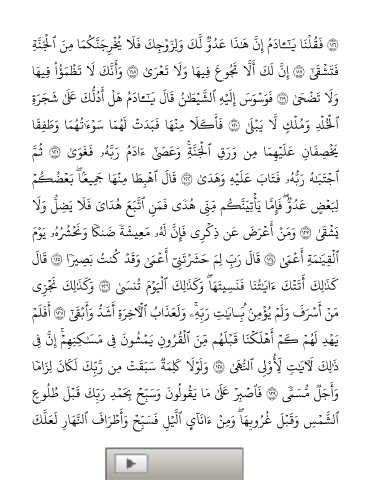 ١١٦ فَقُلْنَا يَـٰٓـَٔادَمُ إِنَّ هَـٰذَا عَدُوٌّ لَّكَ وَلِزَوْجِكَ فَلَا يُخْرِجَنَّكُمَا مِنَ ٱلْجَنَّةِ
فَتَشْقَىٰٓ ١١٧ إِنَّ لَكَ أَلَّا تَجُوعَ فِيهَا وَلَا تَعْرَىٰ ١١٨ وَأَنَّكَ لَا تَظْمَؤُا۟ فِيهَا
وَلَا تَضْحَىٰ ١١٩ فَوَسْوَسَ إِلَيْهِ ٱلشَّيْطَـٰنُ قَالَ يَـٰٓـَٔادَمُ هَلْ أَدُلُّكَ عَلَىٰ شَجَرَةِ
ٱلْخُلْدِ وَمُلْكٍ لَّا يَبْلَىٰ ١٢٠ فَأَكَلَا مِنْهَا فَبَدَتْ لَهُمَا سَوْءَٰتُهُمَا وَطَفِقَا
يَخْصِفَانِ عَلَيْهِمَا مِن وَرَقِ ٱلْجَنَّةِ ۚ وَعَصَىٰٓ ءَادَمُ رَبَّهُۥ فَغَوَىٰ ١٢١ ثُمَّ
ٱجْتَبَـٰهُ رَبُّهُۥ فَتَابَ عَلَيْهِ وَهَدَىٰ ١٢٢ قَالَ ٱهْبِطَا مِنْهَا جَمِيعًۢا ۖ بَعْضُكُمْ
لِبَعْضٍ عَدُوٌّ ۖ فَإِمَّا يَأْتِيَنَّكُم مِّنِّى هُدًى فَمَنِ ٱتَّبَعَ هُدَاىَ فَلَا يَضِلُّ وَلَا
يَشْقَىٰ ١٢٣ وَمَنْ أَعْرَضَ عَن ذِكْرِى فَإِنَّ لَهُۥ مَعِيشَةً ضَنكًا وَنَحْشُرُهُۥ يَوْمَ
ٱلْقِيَـٰمَةِ أَعْمَىٰ ١٢٤ قَالَ رَبِّ لِمَ حَشَرْتَنِىٓ أَعْمَىٰ وَقَدْ كُنتُ بَصِيرًا ١٢٥ قَالَ
كَذَٰلِكَ أَتَتْكَ ءَايَـٰتُنَا فَنَسِيتَهَا ۖ وَكَذَٰلِكَ ٱلْيَوْمَ تُنسَىٰ ١٢٦ وَكَذَٰلِكَ نَجْزِى
مَنْ أَسْرَفَ وَلَمْ يُؤْمِنۢ بِـَٔايَـٰتِ رَبِّهِۦ ۚ وَلَعَذَابُ ٱلْـَٔاخِرَةِ أَشَدُّ وَأَبْقَىٰٓ ١٢٧ أَفَلَمْ
يَهْدِ لَهُمْ كَمْ أَهْلَكْنَا قَبْلَهُم مِّنَ ٱلْقُرُونِ يَمْشُونَ فِى مَسَـٰكِنِهِمْ ۗ إِنَّ فِى
ذَٰلِكَ لَـَٔايَـٰتٍ لِّأُو۟لِى ٱلنُّهَىٰ ١٢٨ وَلَوْلَا كَلِمَةٌ سَبَقَتْ مِن رَّبِّكَ لَكَانَ لِزَامًا
وَأَجَلٌ مُّسَمًّى ١٢٩ فَٱصْبِرْ عَلَىٰ مَا يَقُولُونَ وَسَبِّحْ بِحَمْدِ رَبِّكَ قَبْلَ طُلُوعِ
ٱلشَّمْسِ وَقَبْلَ غُرُوبِهَا ۖ وَمِنْ ءَانَآئِ ٱلَّيْلِ فَسَبِّحْ وَأَطْرَافَ ٱلنَّهَارِ لَعَلَّكَ